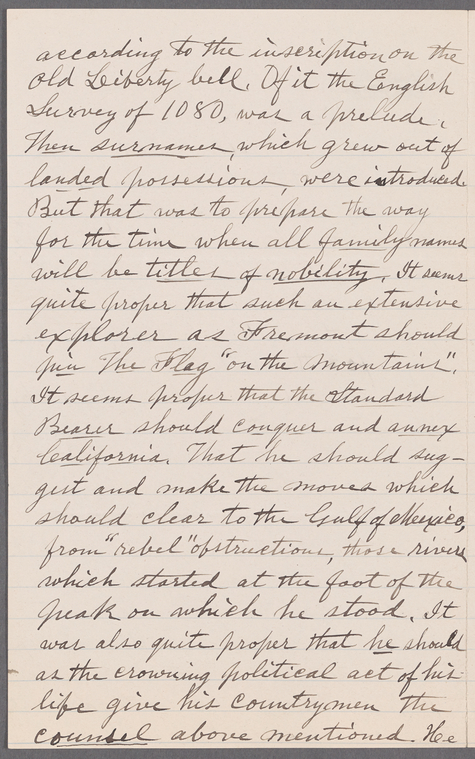 according to the inscription on the
old Liberty bell. Of it the English
Survey of 1080, was a prelude.
Then surnames, which grew out of
landed possessions, were introduced.
But that was to prepare the way
for the time when all family names
will be titles of nobility. It seems
quite proper that such an extensive
explorer as Fremont should
pin The Flag "on the mountains".
It seems proper that the Standard
Bearer should conquer and annex
California. That he should sug-
gest and make the moves which
should clear to the Gulf of Mexico,
from "rebel" obstructions, those rivers
which started at the foot of the
peak on which he stood. It
was also quite proper that he should
as the crowning political act of his
life give his countrymen the
counsel above mentioned. He